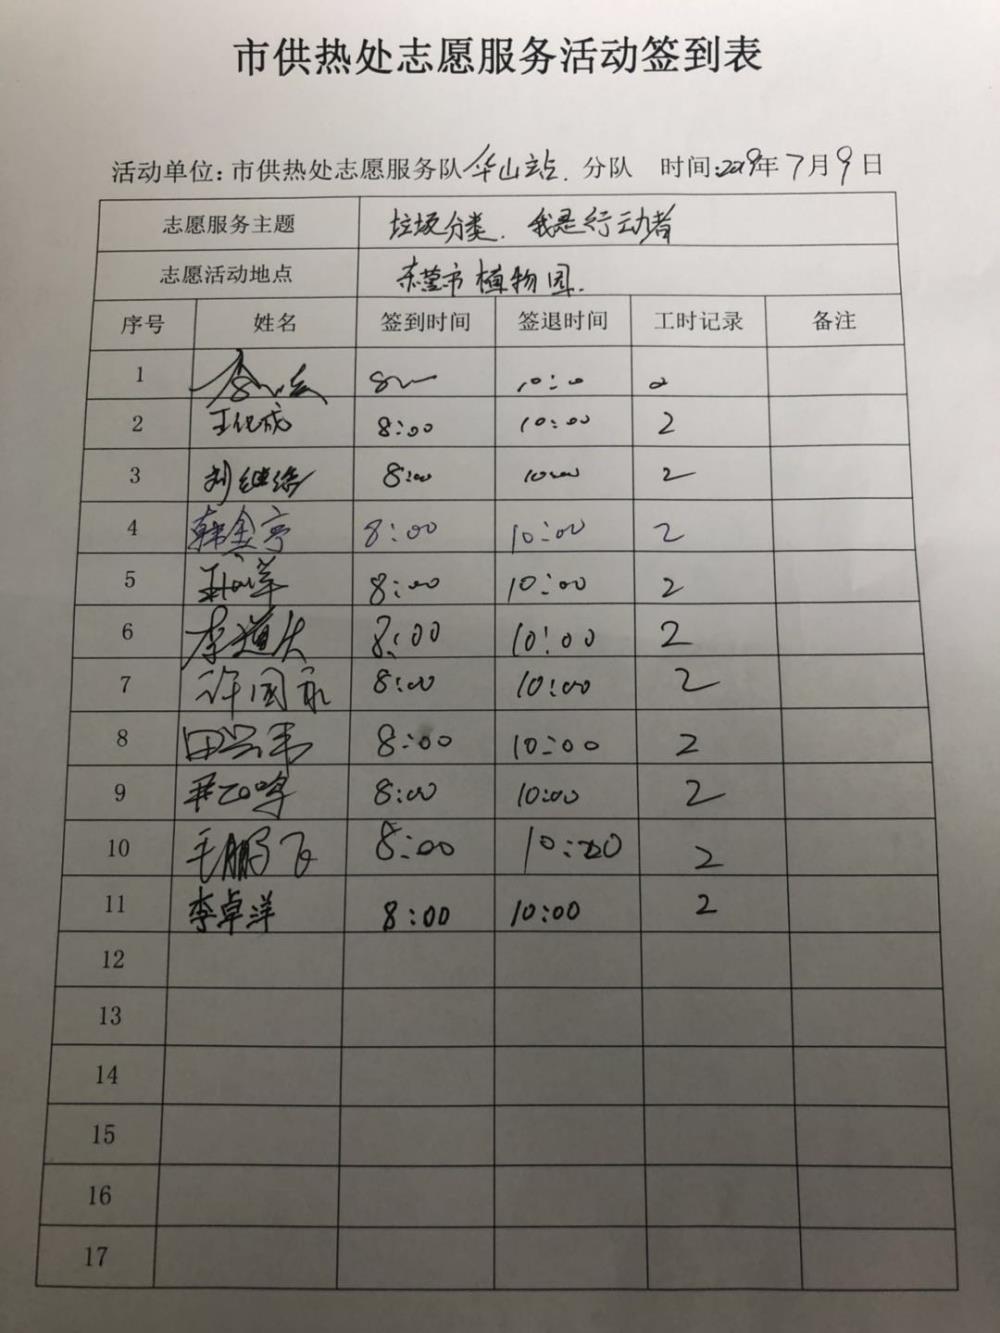 市供热处志愿服务活动签到表
活动单位:市供热处志愿服务队华山站.分队 时间:2019年7月9日
志愿服务主题 垃圾分类.我是行动者
志愿活动地点 东莹市植物园.
序号 姓名 签到时间 签退时间 工时记录 备注
1 10:00 2
2 8:00 10:00 2
3 刘继 8:00 10:00 2
4 韩金亭 8:00 10:00 2
5 8:00 10:00 2
6 李道 8:00 10:00 2
7 许国 8:00 10:00 2
8 田 8:00 10:00 2
9 8:00 10:00 2
10 毛鹏飞 8:00 10:00 2
11 李卓洋 8:00 10:00 2
12
13
14
15
16
17